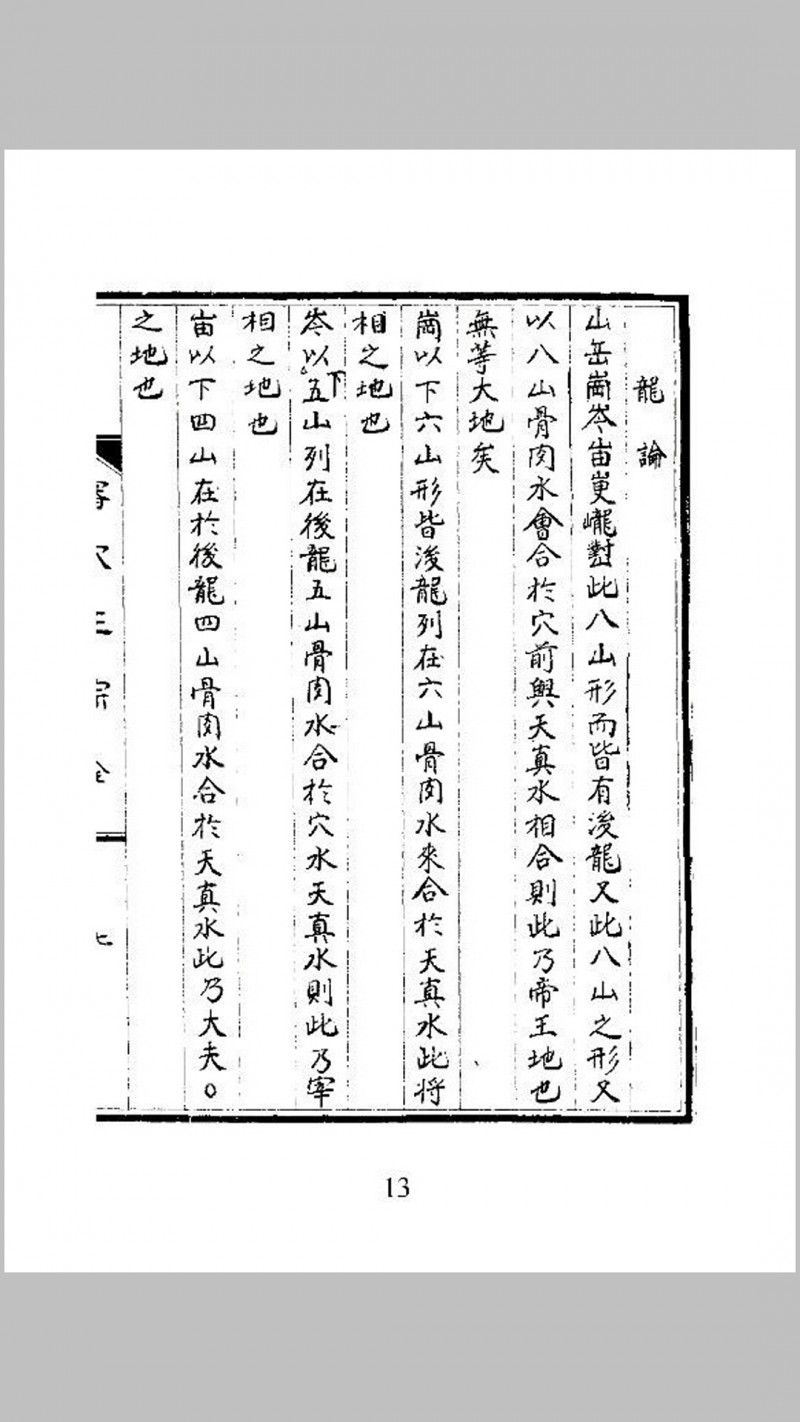 龍論
山岳崗岺峀㟁巃對此八山形而皆有後龍又此八山之形又
以八山骨肉水會合於穴前與天真水相合則此乃帝王地也
無等大地矣
崗以下六山形皆後龍列在六山骨肉水來合於天真水此將
相之地也
岺以下五山列在後龍五山骨肉水合於穴水天真水則此乃宰
相之地也
峀以下四山在於後龍四山骨肉水合於天真水此乃大夫。
之地也
穴 正 宗 全
七
13